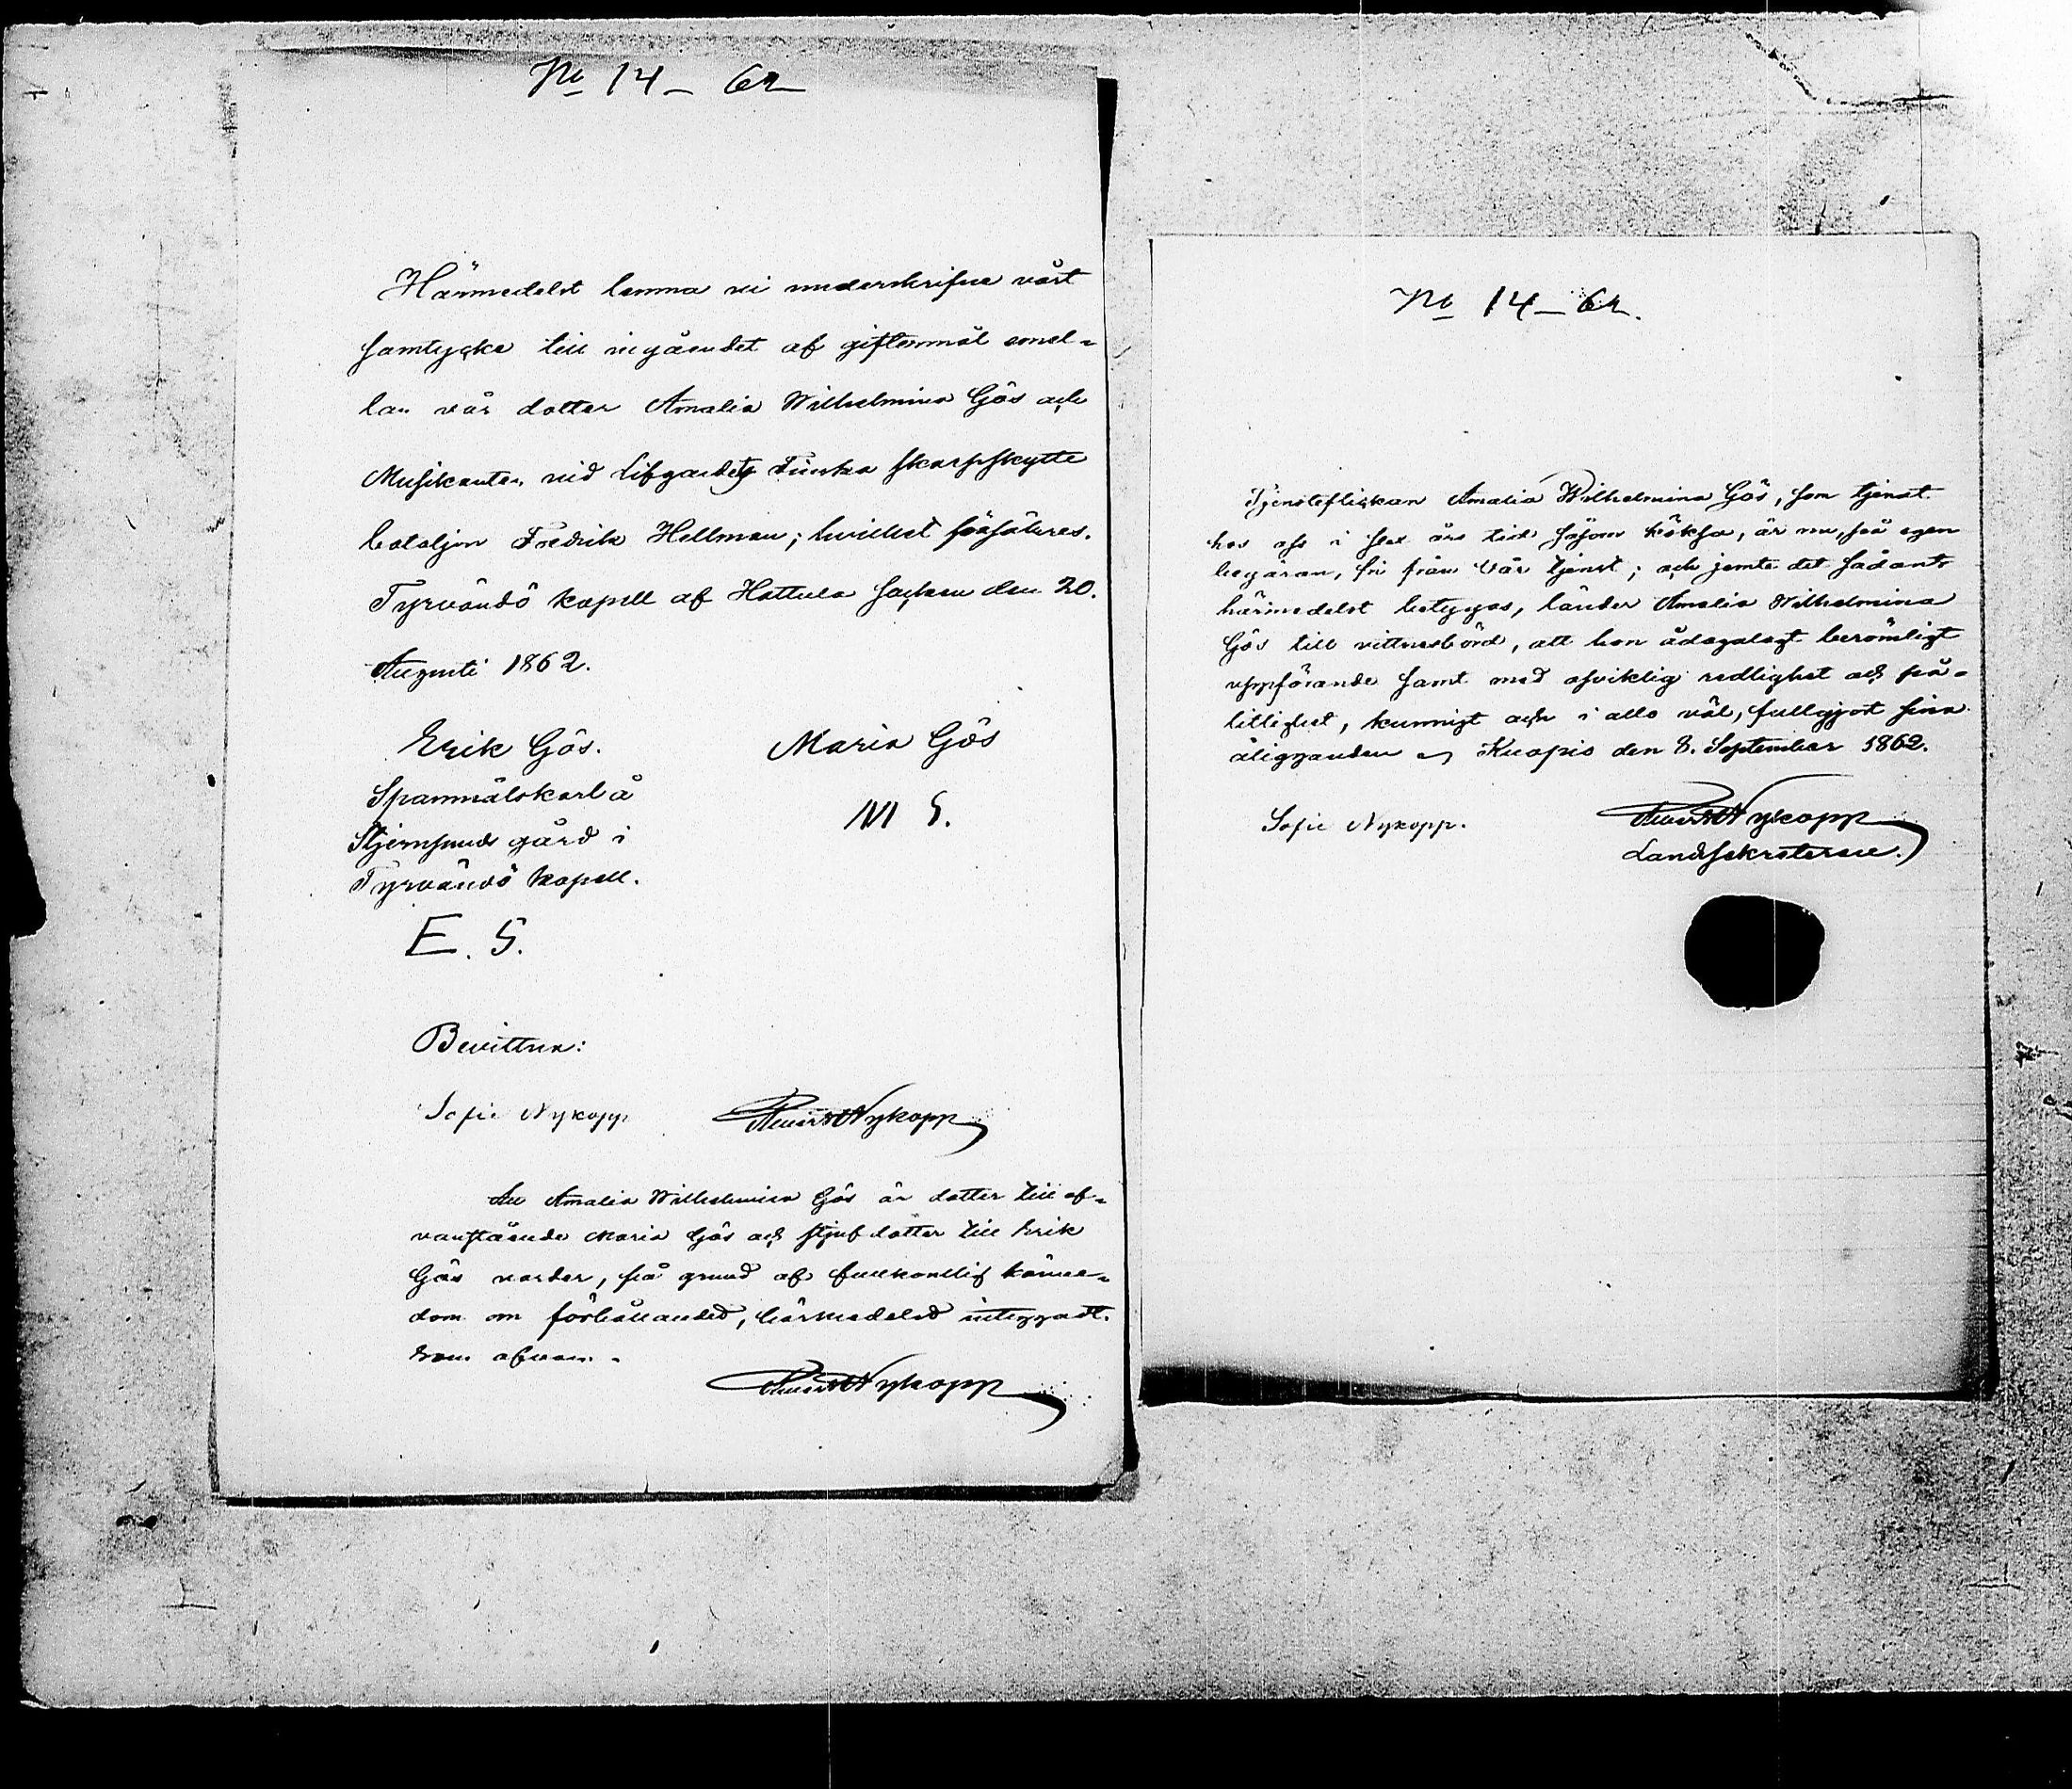 No 14 – 62
Härmedelst lemna vi underskrifne vårt
samtycke till ingåendet af giftermål emel-
lan vår dotter Amalia Wilhelmina Gös och
Musikanten vid Lifgardets Finska skarpskytte
bataljon Fredrik Hellman; hvilket försäkres.
Tyrvändö kapell af Hattula socken den 20.
Augusti 1862.
Erik Gös.
Spannmålskarl å
Stjernsunds gård i
Tyrvändö kapell.
E. G.
Maria Gös
M G.
Bevittna:
Sofie Nykopp. Nykopp
Att Amalia Wilhelmina Gös är dotter till of-
vanstående Maria Gös och stjufdotter till Erik
Gös varder, på grund af fullkomlig känne-
dom om förhållandet, härmedelst intygadt.
Som ofvan.
Nykopp
No 14 – 62.
Tjensteflickan Amalia Wilhelmina Gös, som tjenat
hos oss i sex års tid såsom köksa, är nu, på egen
begäran, fri från vår tjenst; och jemte det sådant
härmedelst betygas, länder Amalia Wilhelmina
Gös till vittnesbörd, att hon ådagalagt berömligt
uppförande samt med osviklig redlighet och på-
litlighet, kunnigt och i allo väl, fullgjort sina
åligganden. Kuopio den 8. September 1862.
Sofie Nykopp. Nykopp
Landssekreterare.